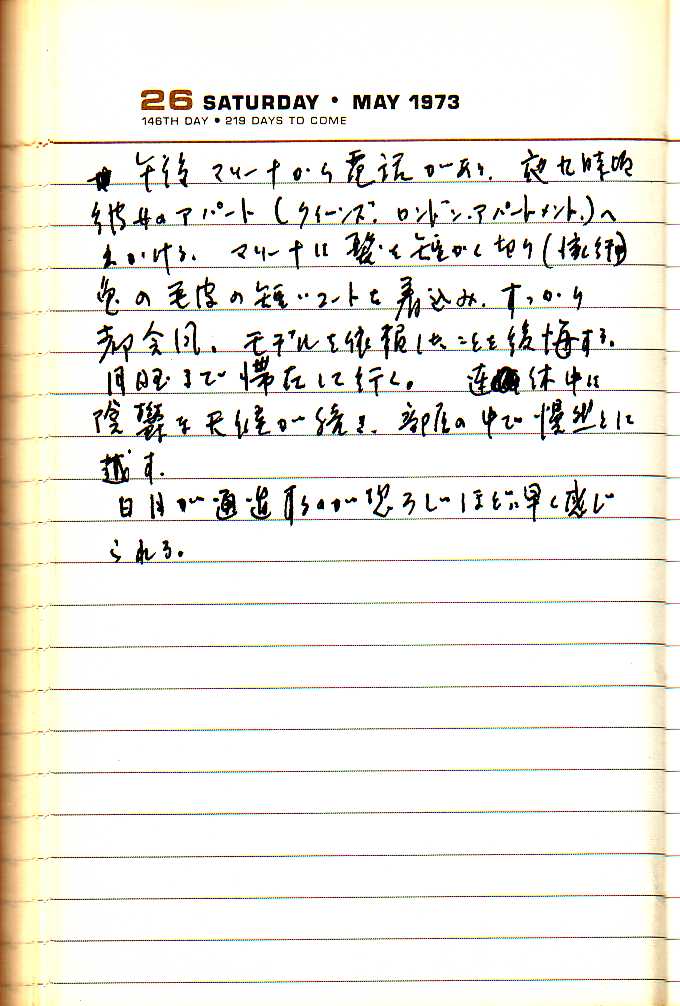 26 SATURDAY • MAY 1973
146TH DAY • 219 DAYS TO COME
午後 マリーナから電話がある. 夜九時頃
彼女のアパート (クイーンズ. ロンドン.アパートメント.)へ
出かける. マリーナは髪を短かく切り(流行)
色の毛皮の短いコートを着込み. すっかり
都会風. モデルを依頼したことを後悔する.
月曜まで滞在して行く. 連休中は
陰鬱な天候が続き. 部屋の中で慢然と
越す.
日月が通過するのが恐ろしいほどに早く感じ
られる.